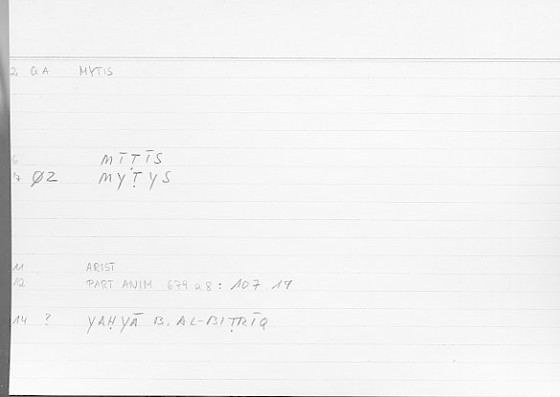 2 GA MYTIS
6 mīṭīs
7 Ø2 myṭys
11 ARIST
12 PART ANIM 679 a 8 : 107 19
14 ? YAḤYĀ B. AL-BIṬRĪQ